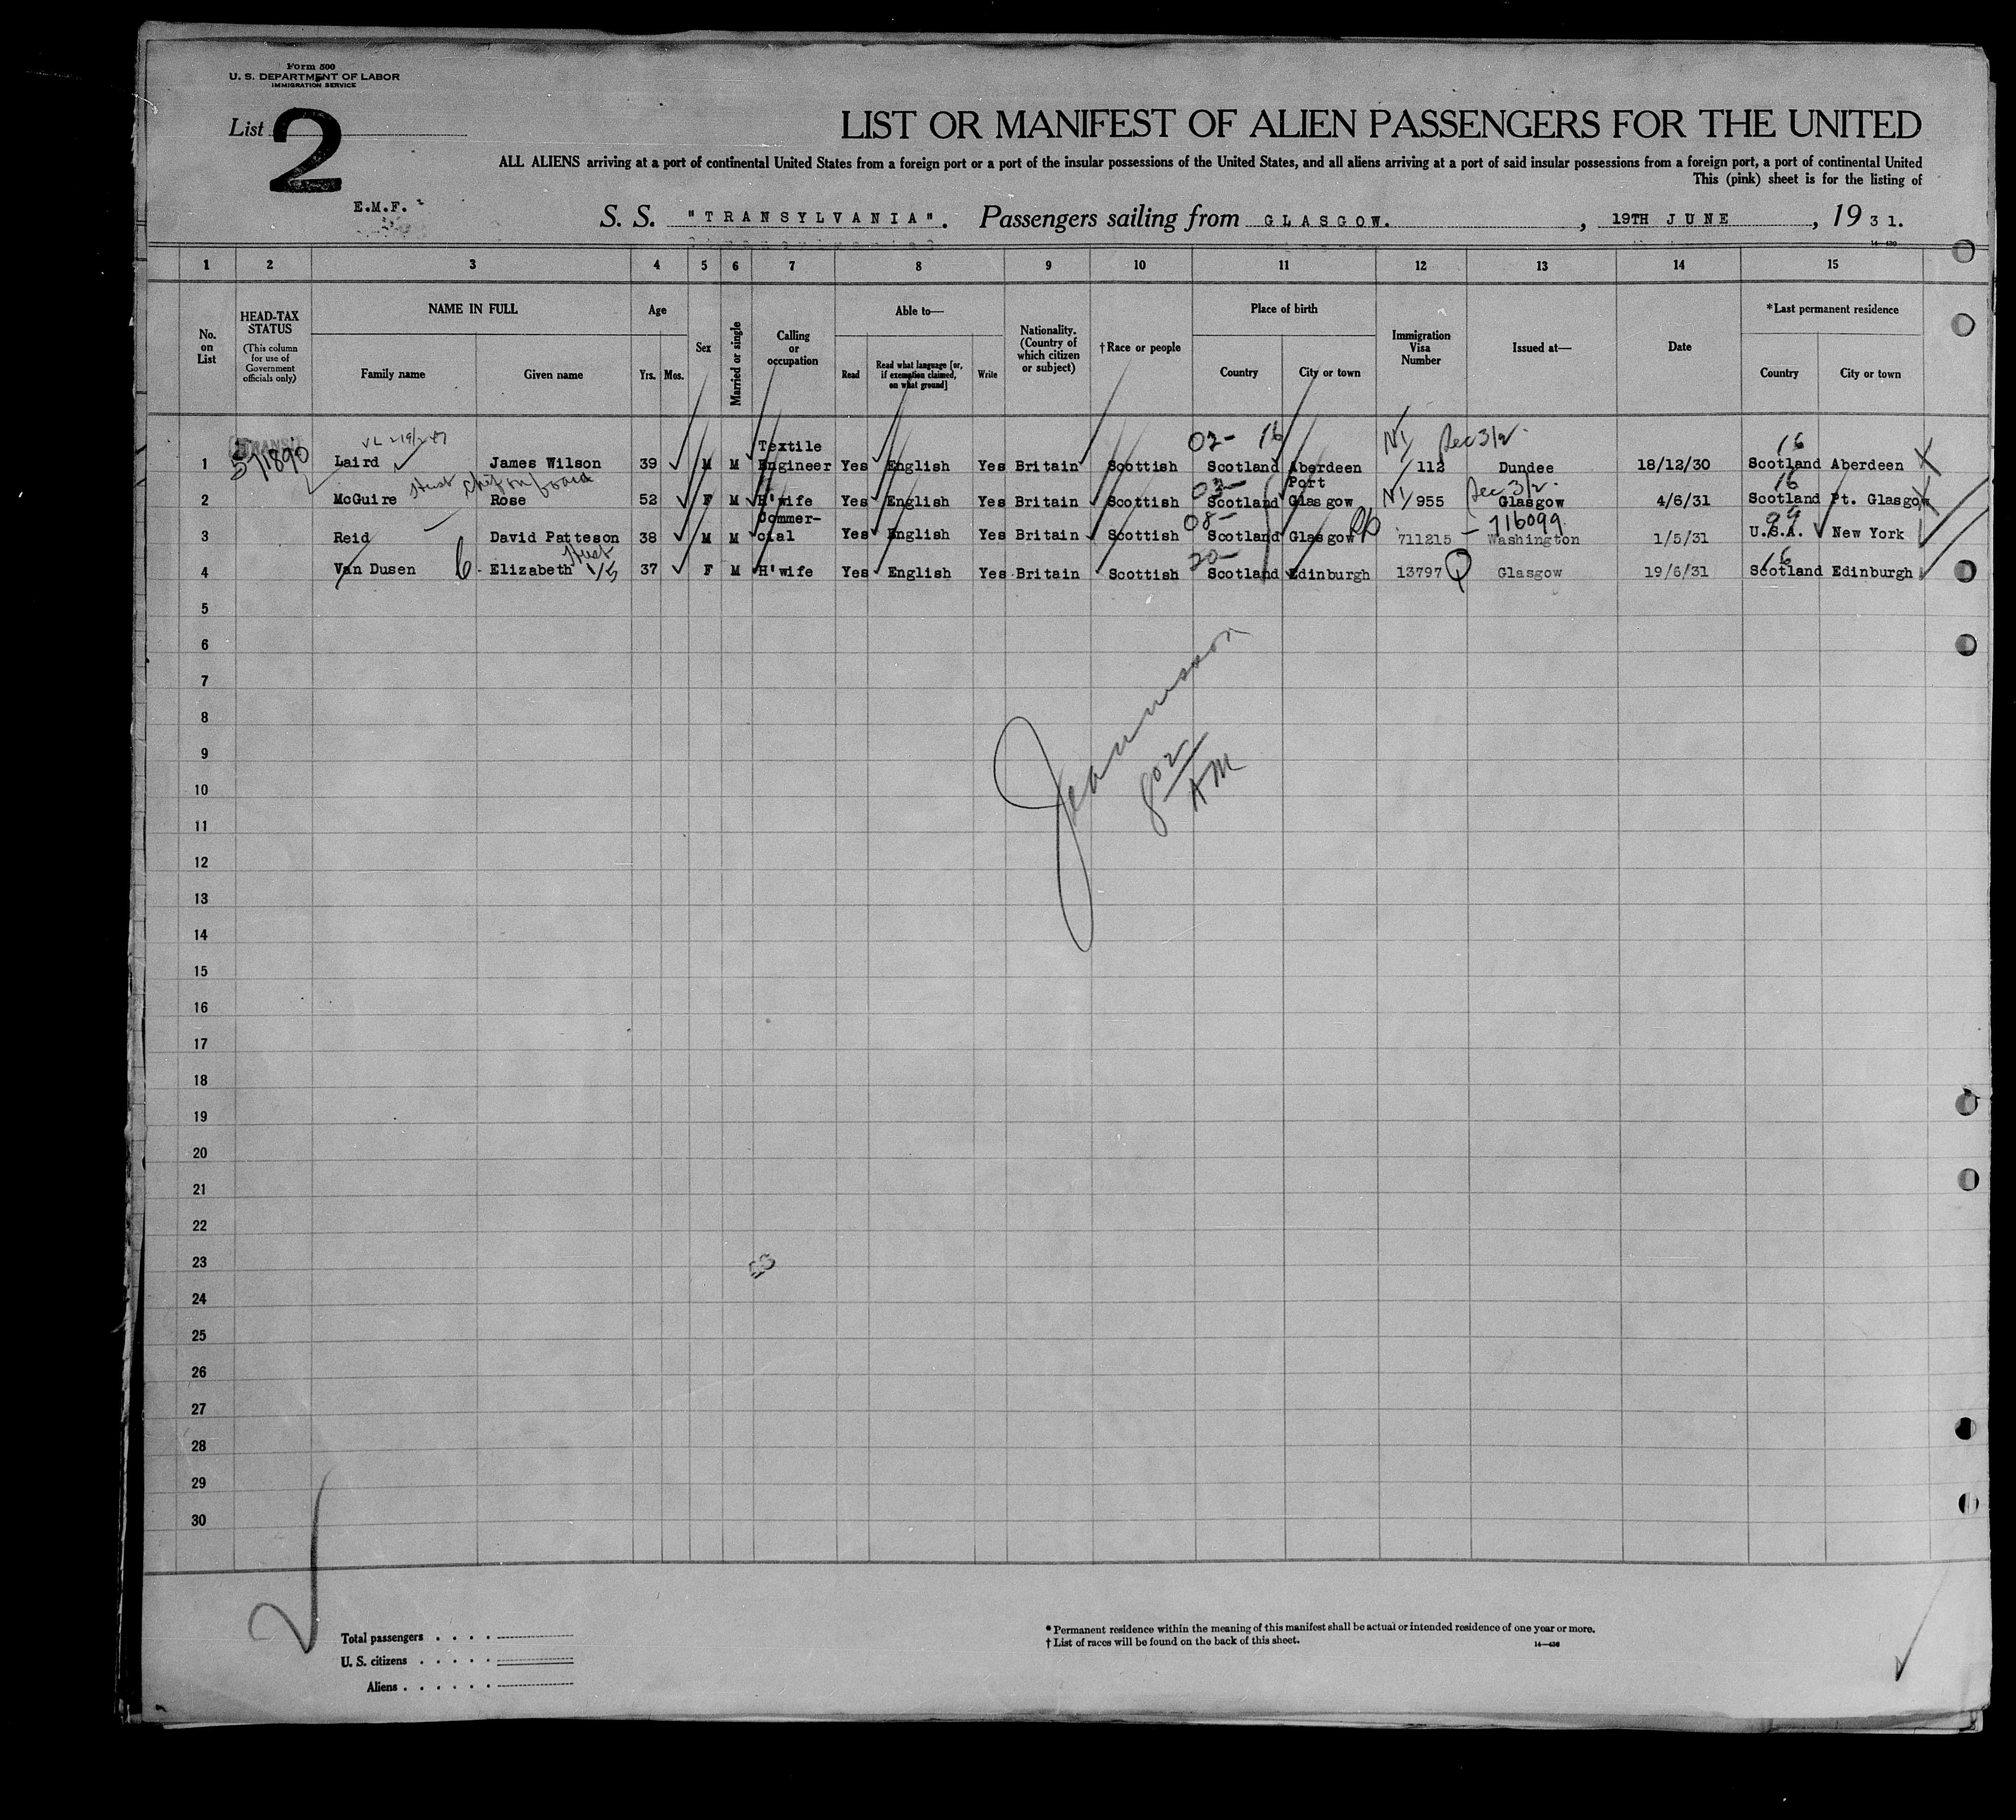 Form 500
U. S. DEPARTMENT OF LABOR
IMMIGRATION SERVICE
List 2
LIST OR MANIFEST OF ALIEN PASSENGERS FOR THE UNITED
ALL ALIENS arriving at a port of continental United States from a foreign port or a port of the insular possessions of the United States, and all aliens arriving at a port of said insular possessions from a foreign port, a port of continental United
This (pink) sheet is for the listing of
E.M.F.
S. S. "TRANSYLVANIA". Passengers sailing from GLASGOW. , 19TH JUNE , 1931.
1 2 3 4 5 6 7 8 9 10 11 12 13 14 15
No. on List
HEAD-TAX STATUS
(This column for use of Government officials only)
NAME IN FULL
Family name Given name
Age
Yrs. Mos.
Sex
Married or single
Calling or occupation
Able to—
Read
Read what language [or, if exemption claimed, on what ground]
Write
Nationality. (Country of which citizen or subject)
† Race or people
Place of birth
Country City or town
Immigration Visa Number
Issued at—
Date
*Last permanent residence
Country City or town
TRANSIT
571890
02- 16 NI Sec 3/2. 16
1 Laird James Wilson 39 M M Textile Engineer Yes English Yes Britain Scottish Scotland Aberdeen 112 Dundee 18/12/30 Scotland Aberdeen
03- NI Sec 3/2. 16
2 McGuire Rose 52 F M H'wife Yes English Yes Britain Scottish Scotland Port Glasgow 955 Glasgow 4/6/31 Scotland Pt. Glasgow
08- 716099 99
3 Reid David Patteson 38 M M Commercial Yes English Yes Britain Scottish Scotland Glasgow 711215 Washington 1/5/31 U.S.A. New York
20- 16
4 Van Dusen Elizabeth 37 F M H'wife Yes English Yes Britain Scottish Scotland Edinburgh 13797 Glasgow 19/6/31 Scotland Edinburgh
5
6
7
8
9
10
802 AM
11
12
13
14
15
16
17
18
19
20
21
22
23
24
25
26
27
28
29
30
Total passengers . . . .
U. S. citizens . . . . .
Aliens . . . . . .
* Permanent residence within the meaning of this manifest shall be actual or intended residence of one year or more.
† List of races will be found on the back of this sheet.